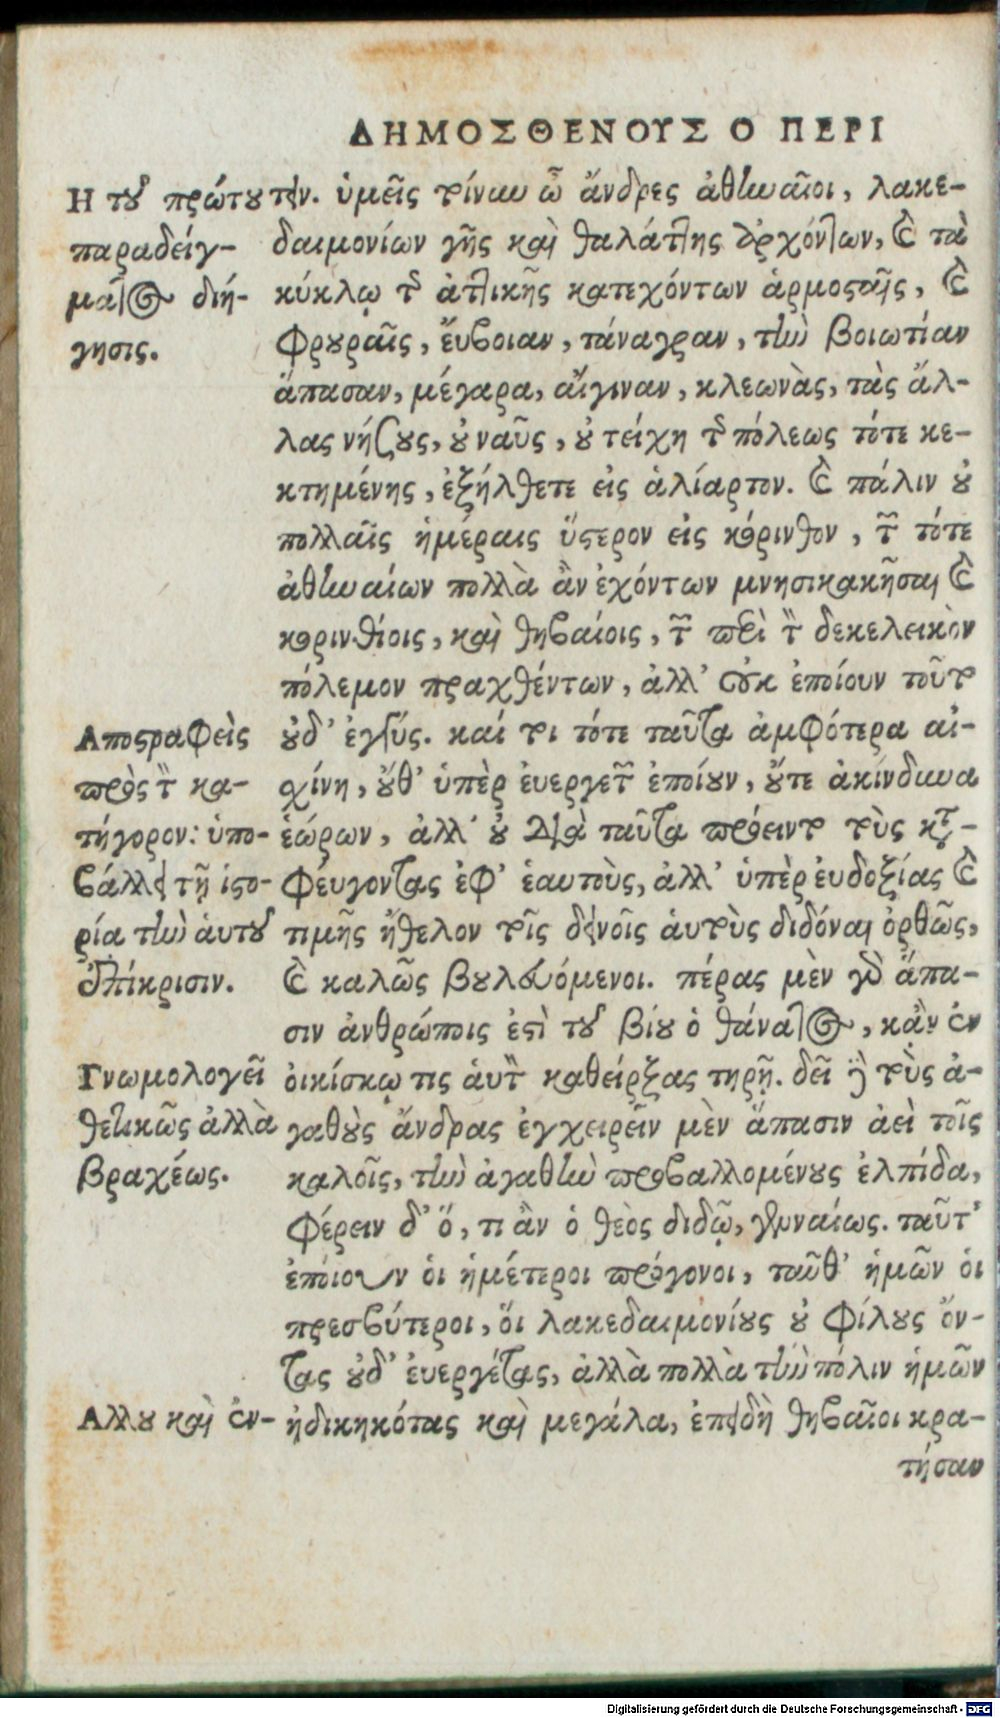 ΔΗΜΟΣΘΕΝΟΥΣ Ο ΠΕΡΙ
Η τοῦ πρώτου
παραδείγ-
ματος διή-
γησις.
τειν. ὑμεῖς τοίνυν ὦ ἄνδρες ἀθηναῖοι, λακε-
δαιμονίων γῆς καὶ θαλάττης ἀρχόντων, καὶ τὰ
κύκλῳ τῆς ἀττικῆς κατεχόντων ἁρμοσταῖς, καὶ
φρουραῖς, ἔυβοιαν, τάναγραν, τὴν βοιωτίαν
ἅπασαν, μέγαρα, αἴγιναν, κλεωνὰς, τὰς ἄλ-
λας νήσους, οὐ ναῦς, οὐ τείχη τῆς πόλεως τότε κε-
κτημένης, ἐξήλθετε εἰς ἁλίαρτον. καὶ πάλιν οὐ
πολλαῖς ἡμέραις ὕστερον εἰς κόρινθον, τῶν τότε
ἀθηναίων πολλὰ ἂν ἐχόντων μνησικακῆσαι καὶ
κορινθίοις, καὶ θηβαίοις, τῶν περὶ τὸν δεκελεικὸν
πόλεμον πραχθέντων, ἀλλ’ οὐκ ἐποίουν τοῦτο
οὐδ’ ἐγγύς. καί τοι τότε ταῦτα ἀμφότερα αἰ-
σχίνη, οὔθ’ ὑπὲρ ἐυεργετῶν ἐποίουν, οὔτε ἀκίνδυνα
ἑώρων, ἀλλ’ οὐ διὰ ταῦτα πρόειντο τοὺς κατα-
φέυγοντας ἐφ’ ἑαυτοὺς, ἀλλ’ ὑπὲρ ἐυδοξίας καὶ
τιμῆς ἤθελον τοῖς δεινοῖς ἁυτοὺς διδόναι ὀρθῶς,
καὶ καλῶς βουλευόμενοι. πέρας μὲν γὰρ ἅπα-
σιν ἀνθρώποις ἐστὶ τοῦ βίου ὁ θάνατος, κἂν ἐν
οἰκίσκῳ τις ἁυτὸν καθείρξας τηρῇ. δεῖ δὲ τοὺς ἀ-
γαθοὺς ἄνδρας ἐγχειρεῖν μὲν ἅπασιν ἀεὶ τοῖς
καλοῖς, τὴν ἀγαθὴν προβαλλομένους ἐλπίδα,
φέρειν δ’ ὅ, τι ἂν ὁ θεὸς διδῷ, γενναίως. ταῦτ’
ἐποίουν οἱ ἡμέτεροι πρόγονοι, ταῦθ’ ἡμῶν οἱ
πρεσβύτεροι, ὅι λακεδαιμονίους οὐ φίλους ὄν-
τας οὐδ’ ἐυεργέτας, ἀλλὰ πολλὰ τὴν πόλιν ἡμῶν
ἠδικηκότας καὶ μεγάλα, ἐπειδὴ θηβαῖοι κρα-
τήσαν
Αποστραφεὶς
πρὸς τὸν κα-
τήγορον: ὑπο-
βάλλει τῇ ἱστο-
ρία τὴν ἁυτοῦ
ἐπίκρισιν.
Γνωμολογεῖ
θετικῶς ἀλλὰ
βραχέως.
Αλλου καὶ ἐν-
Digitalisierung gefördert durch die Deutsche Forschungsgemeinschaft - DFG